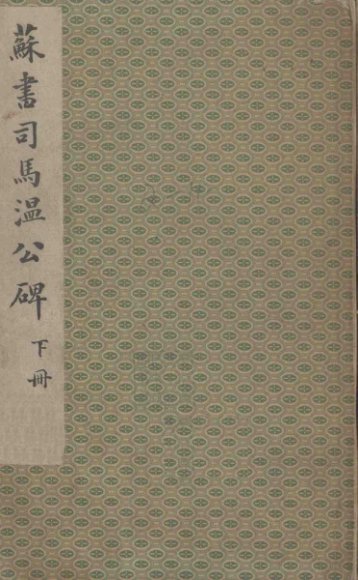 蘇書司馬温公碑 下冊